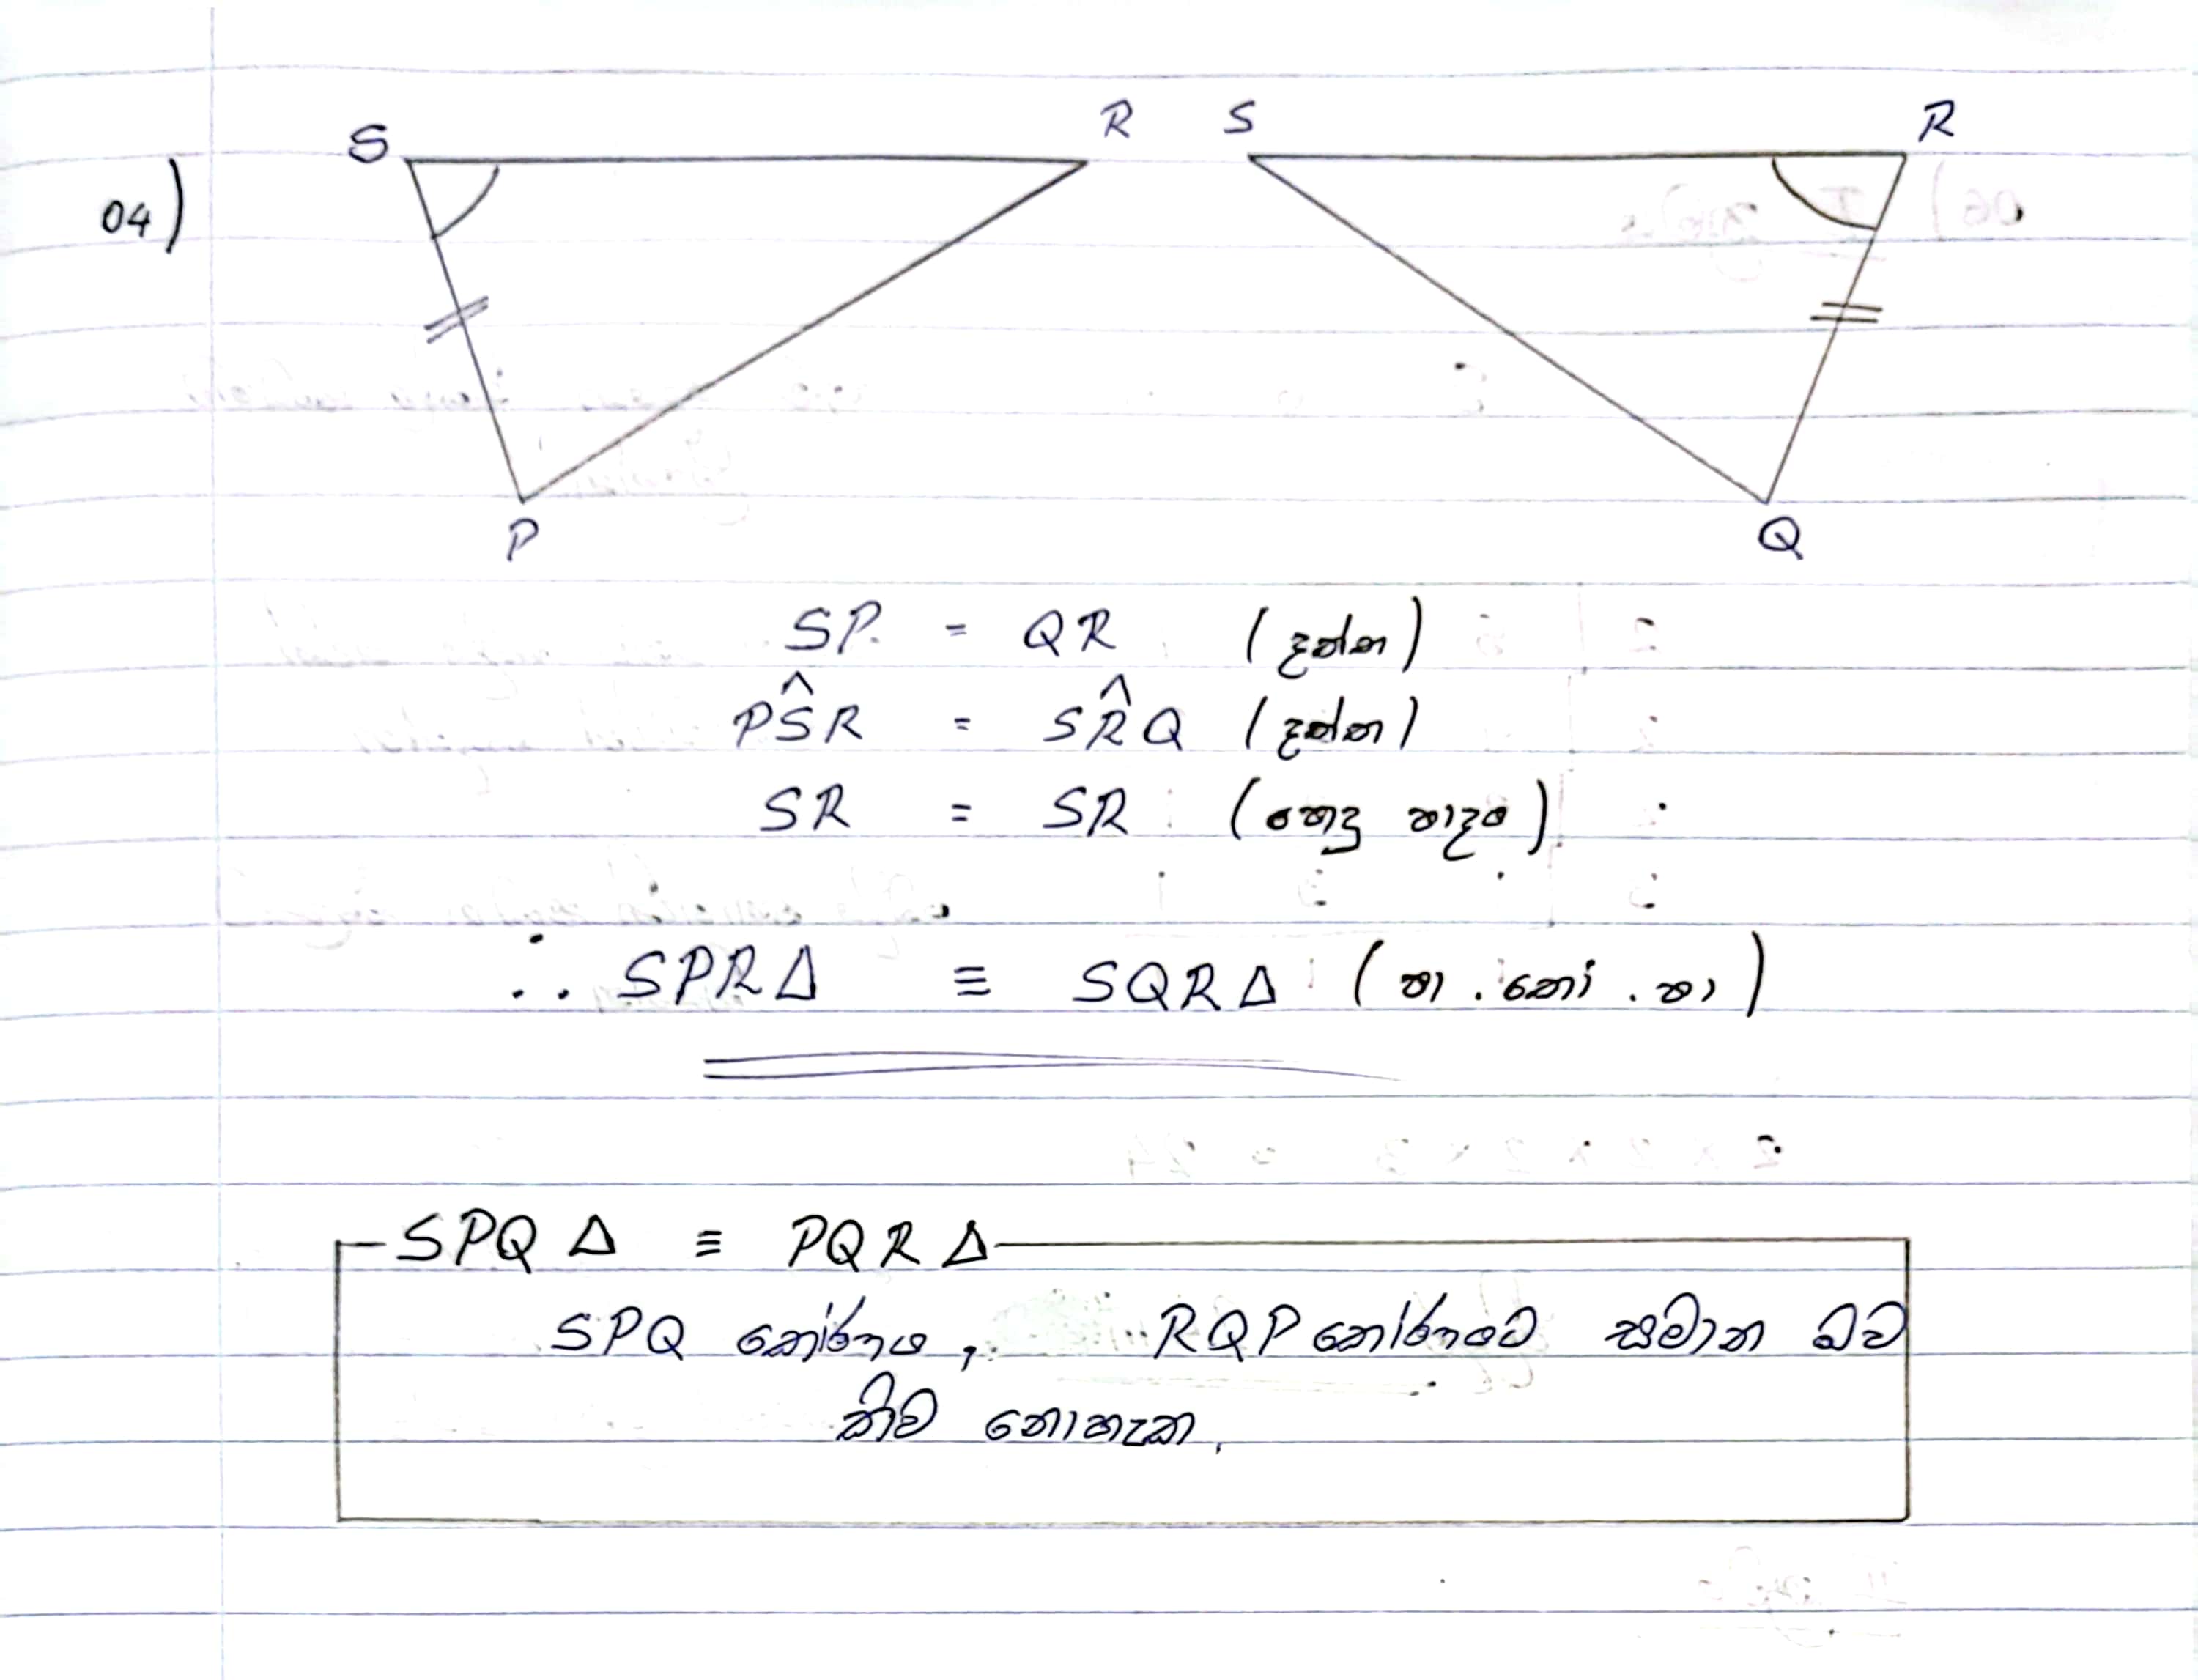 S R S R
04)
P Q
SP = QR (දත්ත)
PŜR = SR̂Q (දත්ත)
SR = SR (පොදු පාදය)
∴ SPR∆ ≡ SQR∆ (පා . කෝ . පා)
SPQ ∆ ≡ PQR ∆
SPQ කෝණය , RQP කෝණයට සමාන බව
කිව නොහැක.